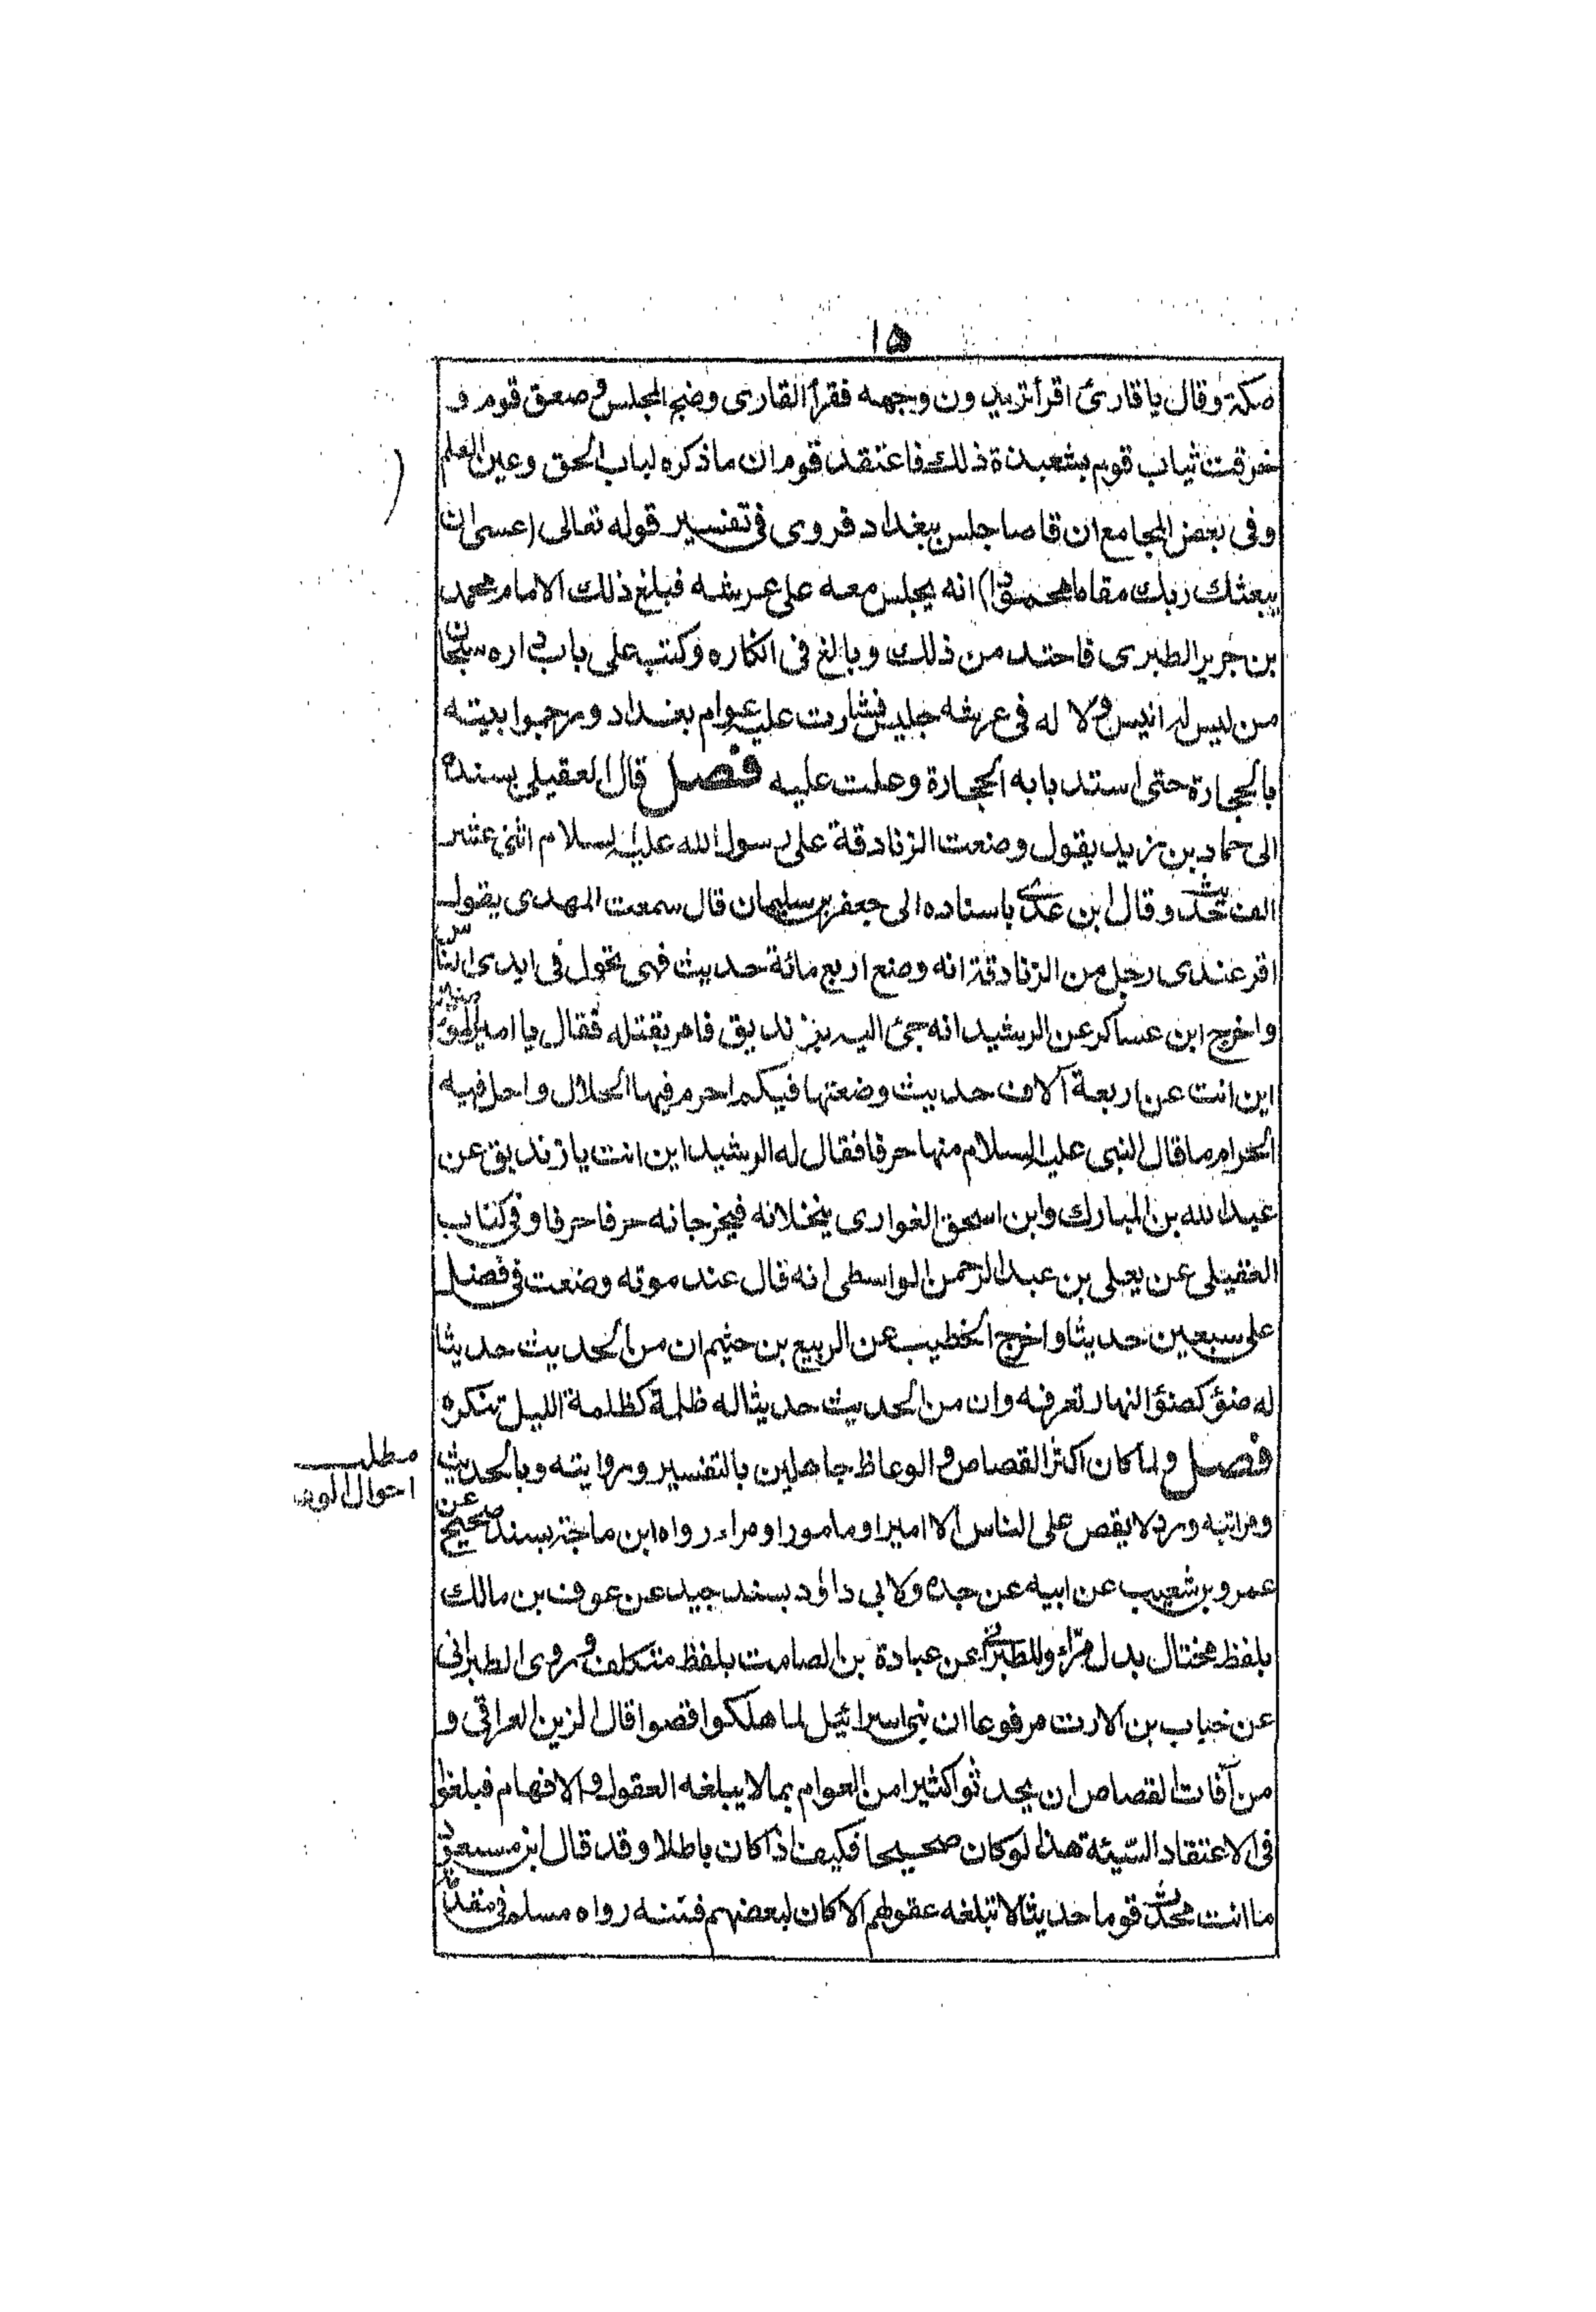 ١٥
صكة وقال يا قارئ اقرأ تريدون وجهه فقرأ القارى وضج المجلس و صعق قوم و
خرقت ثياب قوم بشعبذة ذلك فاعتقد قوم ان ما ذكره لباب الحق وعين العلم
وفى بعض المجامع ان قاصا جلس ببغداد فروى فى تفسير قوله تعالى (عسى ان
يبعثك ربك مقاما محمودا) انه يجلس معه على عرشه فبلغ ذلك الامام محمد
بن جرير الطبرى فاحتد من ذلك وبالغ فى انكاره وكتب على باب داره سبحان
من ليس له انيس ولا له فى عرشه جليس فثارت عليه عوام بغداد ورجموا بيته
بالحجارة حتى استد بابه الحجارة وعلت عليه فصل قال العقيلى بسنده
الى حماد بن زيد يقول وضعت الزنادقة على رسول الله عليه السلام اثنى عشر
الف حديث وقال ابن عدى باسناده الى جعفر بن سليمان قال سمعت المهدى يقول
اقر عندى رجل من الزنادقة انه وضع اربع مائة حديث فهى تحول فى ايدى الناس
واخرج ابن عساكر عن الرشيد انه جئ اليه بزنديق فامر بقتله فقال يا امير المؤمنين
اين انت عن اربعة آلاف حديث وضعتها فيكم احرم فيها الحلال واحل فيه
الحرام ما قال النبى عليه السلام منها حرفا فقال له الرشيد اين انت يا زنديق عن
عبد الله بن المبارك وابن اسحق الغوارى ينخلانه فيخرجانه حرفا حرفا وفى كتاب
العقيلى عن يعلى بن عبد الرحمن الواسطى انه قال عند موته وضعت فى فضل
على سبعين حديثا واخرج الخطيب عن الربيع بن خثيم ان من الحديث حديثا
له ضوْ كضوْ النهار تعرفه وان من الحديث حديثا له ظلمة كظلمة الليل تنكره
فصل ولما كان اكثر القصاص و الوعاظ جاهلين بالتفسير وروايته وبالحديث
ومراتبه ورد لا يقص على الناس الا امير او مامور او مراء رواه ابن ماجة بسند صحيح عن
عمرو بن شعيب عن ابيه عن جده ولابى داؤد بسند جيد عن عوف بن مالك
بلفظ مختال بدل مراء وللطبرانى عن عبادة بن الصامت بلفظ متكلف وروى الطبرانى
عن خباب بن الارت مرفوعا ان بنى اسرائيل لما هلكوا قصوا قال الزين العراقى و
من آفات القصاص ان يحدثوا كثيرا من العوام بما لا يبلغه العقول و الافهام فبلغوا
فى الاعتقاد السيئة هذا لو كان صحيحا فكيف اذا كان باطلا وقد قال ابن مسعود
ما انت محدث قوما حديثا لا تبلغه عقولهم الا كان لبعضهم فتنه رواه مسلم فى
مطلب
احوال